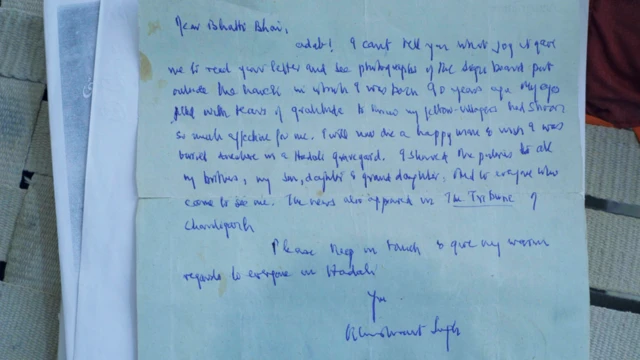 Dear Bhatti Bhai,
adab! I can't tell you what joy it gave
me to read your letter and see photographs of the sign board put
outside the house in which I was born 90 years ago. My eyes
filled with tears of gratitude to know my fellow-villagers had shown
so much affection for me. I will now die a happy man & wish I was
buried somewhere in a Hadali graveyard. I showed the pictures to all
my brothers, my son, daughter & grand daughter, and to everyone who
came to see me. The news also appeared in The Tribune of
Chandigarh
Please keep in touch & give my warm
regards to everyone in Hadali
Yrs
Khushwant Singh